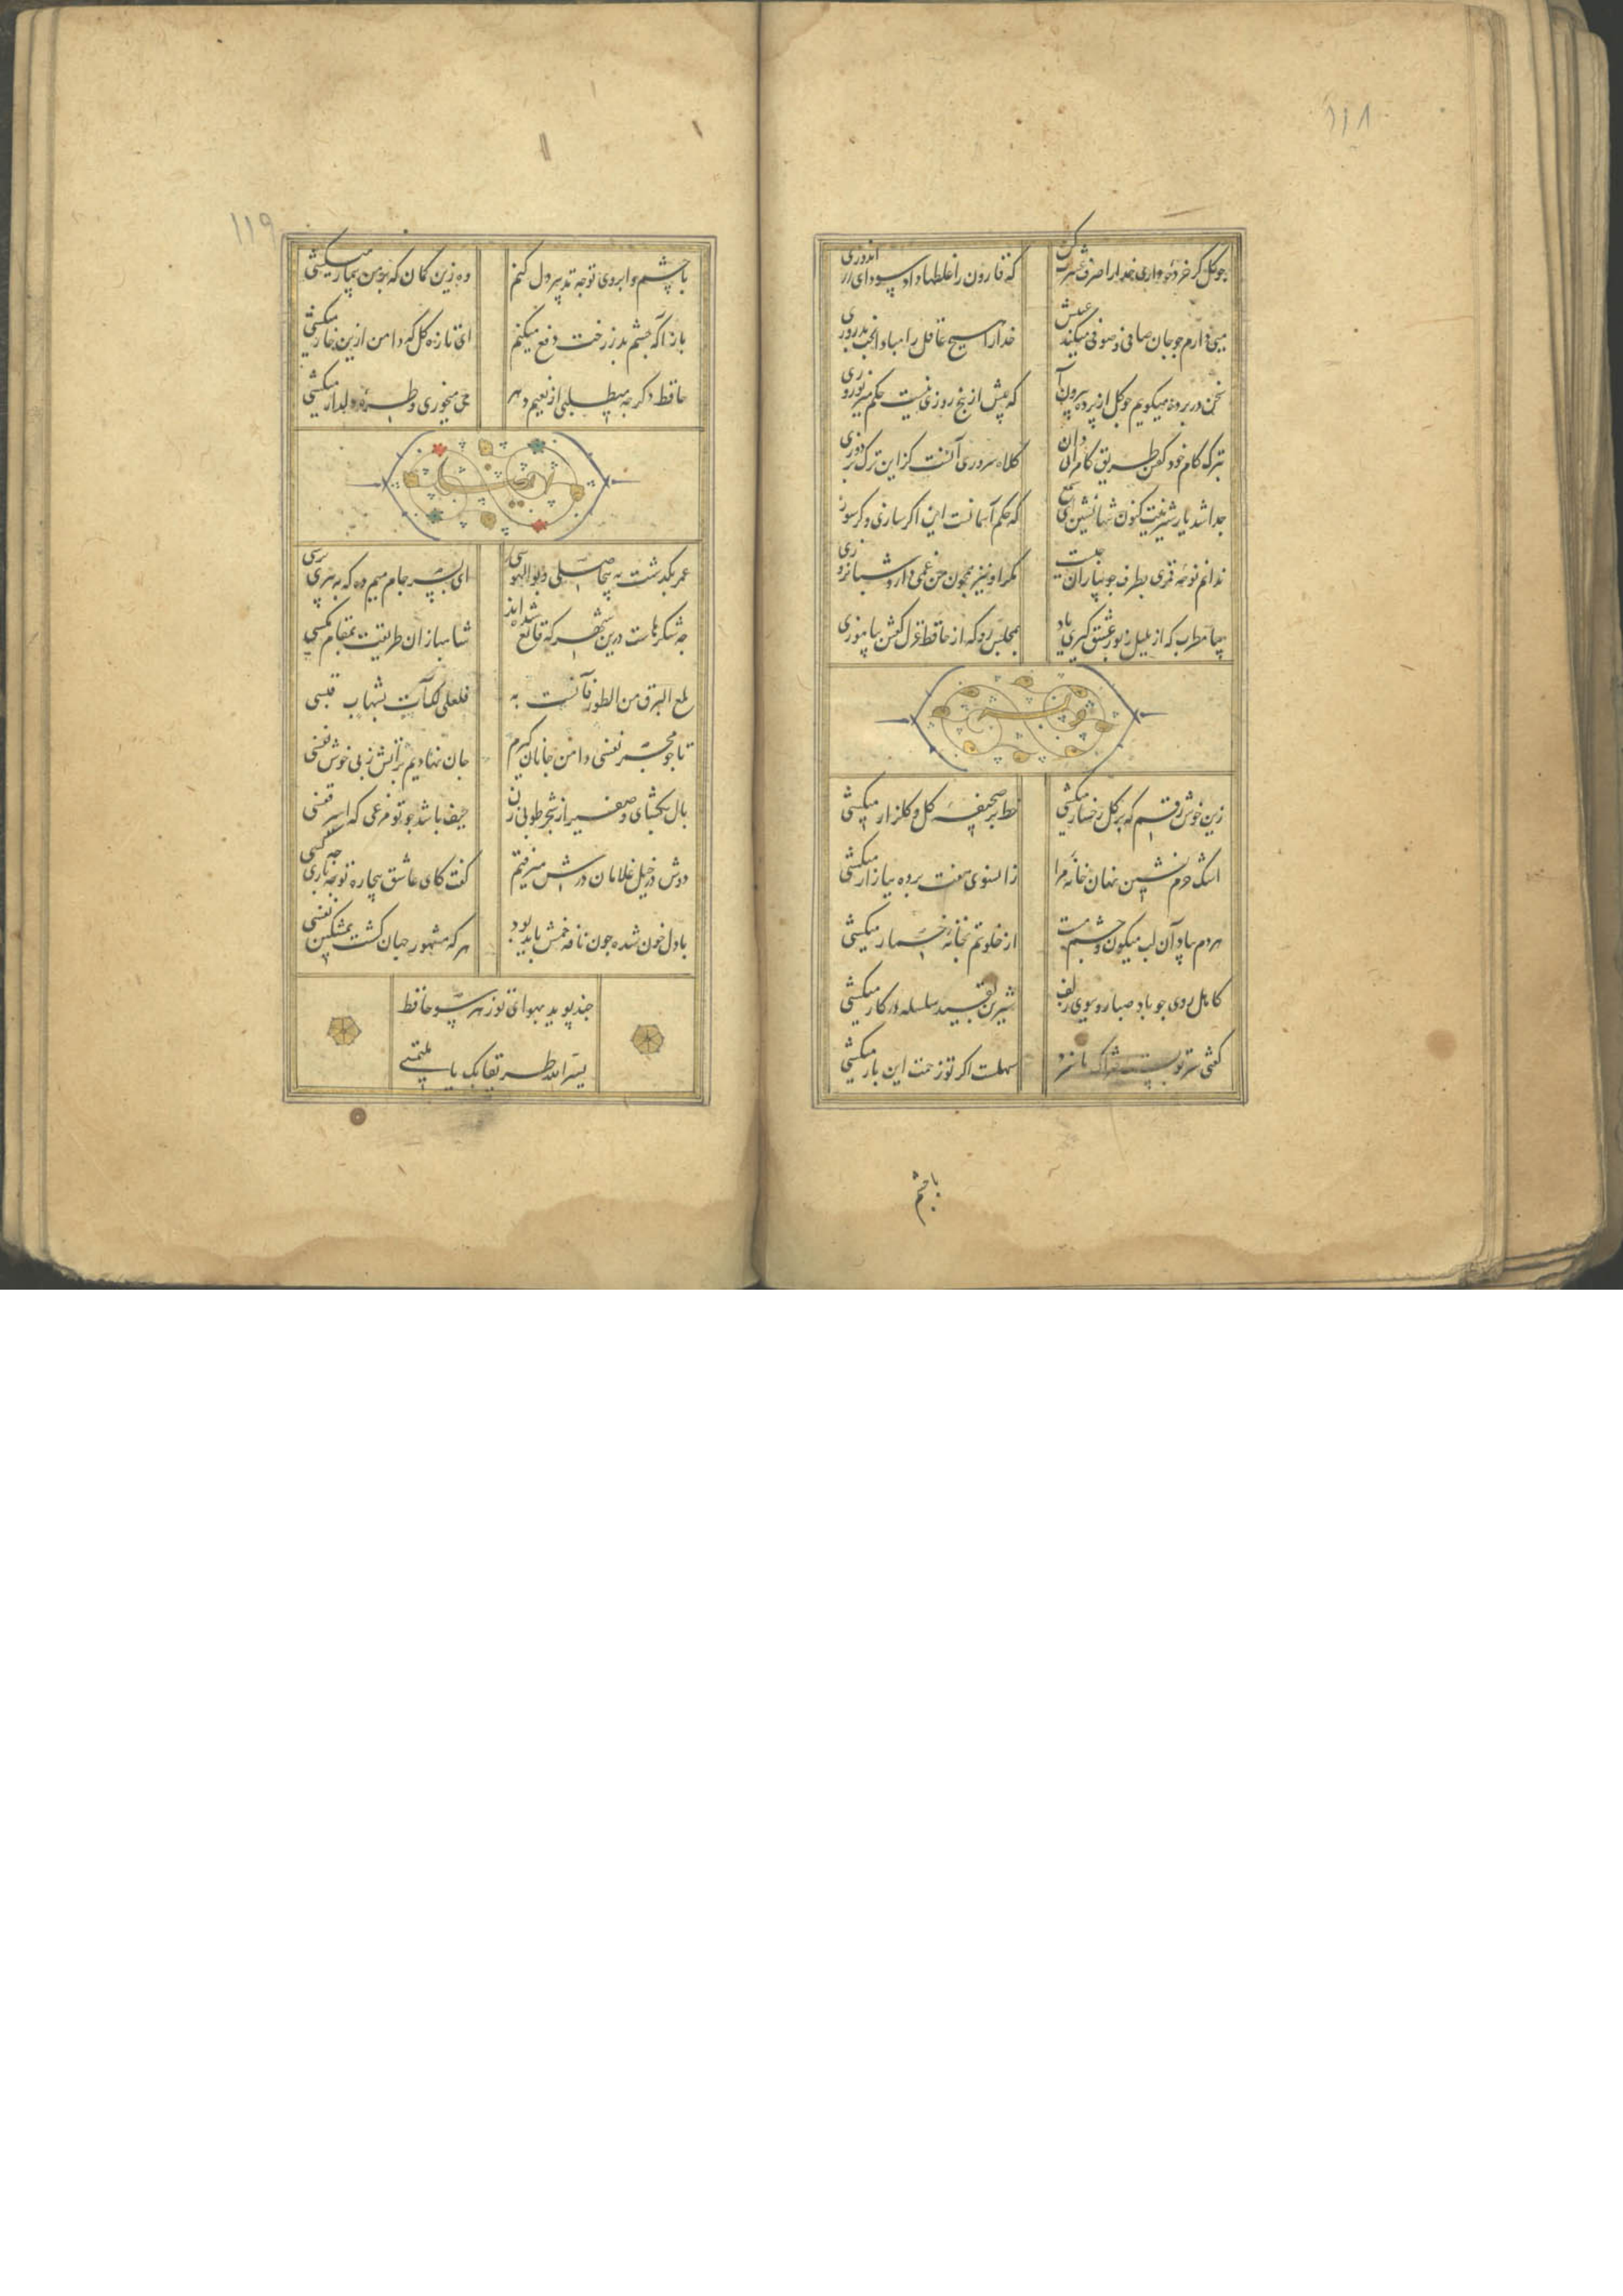 ۱۱۸
چو گل گر خردهٔ داری خدا را صرف عشرت کن
که قارون را غلطها داد سودای زر اندوزی
میی دارم چو جان صافی و صوفی میکند عیبش
خدایا هیچ عاقل را مبادا بخت بد روزی
سخن در پرده میگویم چو گل از پرده بیرون آ
که بیش از پنج روزی نیست حکم میر نوروزی
بترک کام خود گفتن طریق کام رانی دان
کلاه سروری آنست کز این ترک بردوزی
جدا شد یار شیرینت کنون تنها نشین ای شمع
که حکم آسمانست این اگر سازی و گر سوزی
ندانم نوحهٔ قمری بطرف جویباران چیست
مگر او نیز همچون من غمی دارد شبانروزی
بیا مطرب که از بلبل رموز عشق گیری یاد
بمجلس رو که از حافظ غزل گفتن بیاموزی
زین خوش رقم که بر گل رخسار میکشی
خط بر صحیفهٔ گل و گلزار میکشی
اشک حرم نشین نهان خانهٔ مرا
زانسوی هفت پرده ببازار میکشی
هردم بیاد آن لب میگون و چشم مست
از خلوتم بخانهٔ خمار میکشی
کاهل روی چو باد صبا رو بسوی زلف
شیرین بقید سلسله در کار میکشی
گفتی سر تو بسته فتراک ما سزد
سهلست اگر تو زحمت این بار میکشی
با چشم
۱۱۹
با چشم و ابروی تو چه تدبیر دل کنم
وه زین کمان که بر من بیمار میکشی
باز آ که چشم بد ز رخت دفع میکنم
ای تازه گل که دامن ازین خار میکشی
حافظ دگر چه میطلبی از نعیم دهر
می میخوری و طرهٔ دلدار میکشی
عمر بگذشت به بیحاصلی و بوالهوسی
ای پسر جام میم ده که به پیری برسی
چه شکرهاست درین شهر که قانع شده‌اند
شاهبازان طریقت بمقام مگسی
لمع البرق من الطور فآنست به
فلعلی لک آت بشهاب قبسی
تا چو مجمر نفسی دامن جانان گیرم
جان نهادیم بر آتش ز پی خوش نفسی
بال بگشای و صفیر از شجر طوبی زن
حیف باشد چو تو مرغی که اسیر قفسی
دوش در خیل غلامان درش میرفتم
گفت کای عاشق بیچاره تو باری چه کسی
با دل خون شده چون نافه خوشش باید بود
هر که مشهور جهان گشت بمشکین نفسی
چند پوید بهوای تو ز هر سو حافظ
یسر الله طریقا بک یا ملتمسی